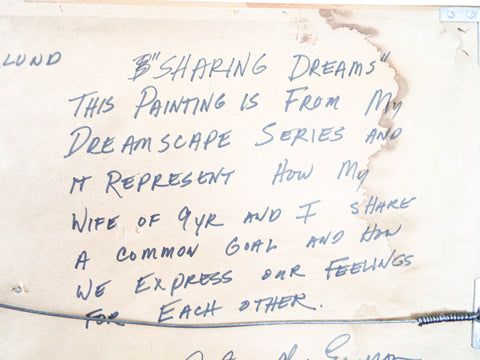 LUND "SHARING DREAMS"
THIS PAINTING IS FROM MY
DREAMSCAPE SERIES AND
IT REPRESENT HOW MY
WIFE OF 9YR AND I SHARE
A COMMON GOAL AND HOW
WE EXPRESS OUR FEELINGS
FOR EACH OTHER.